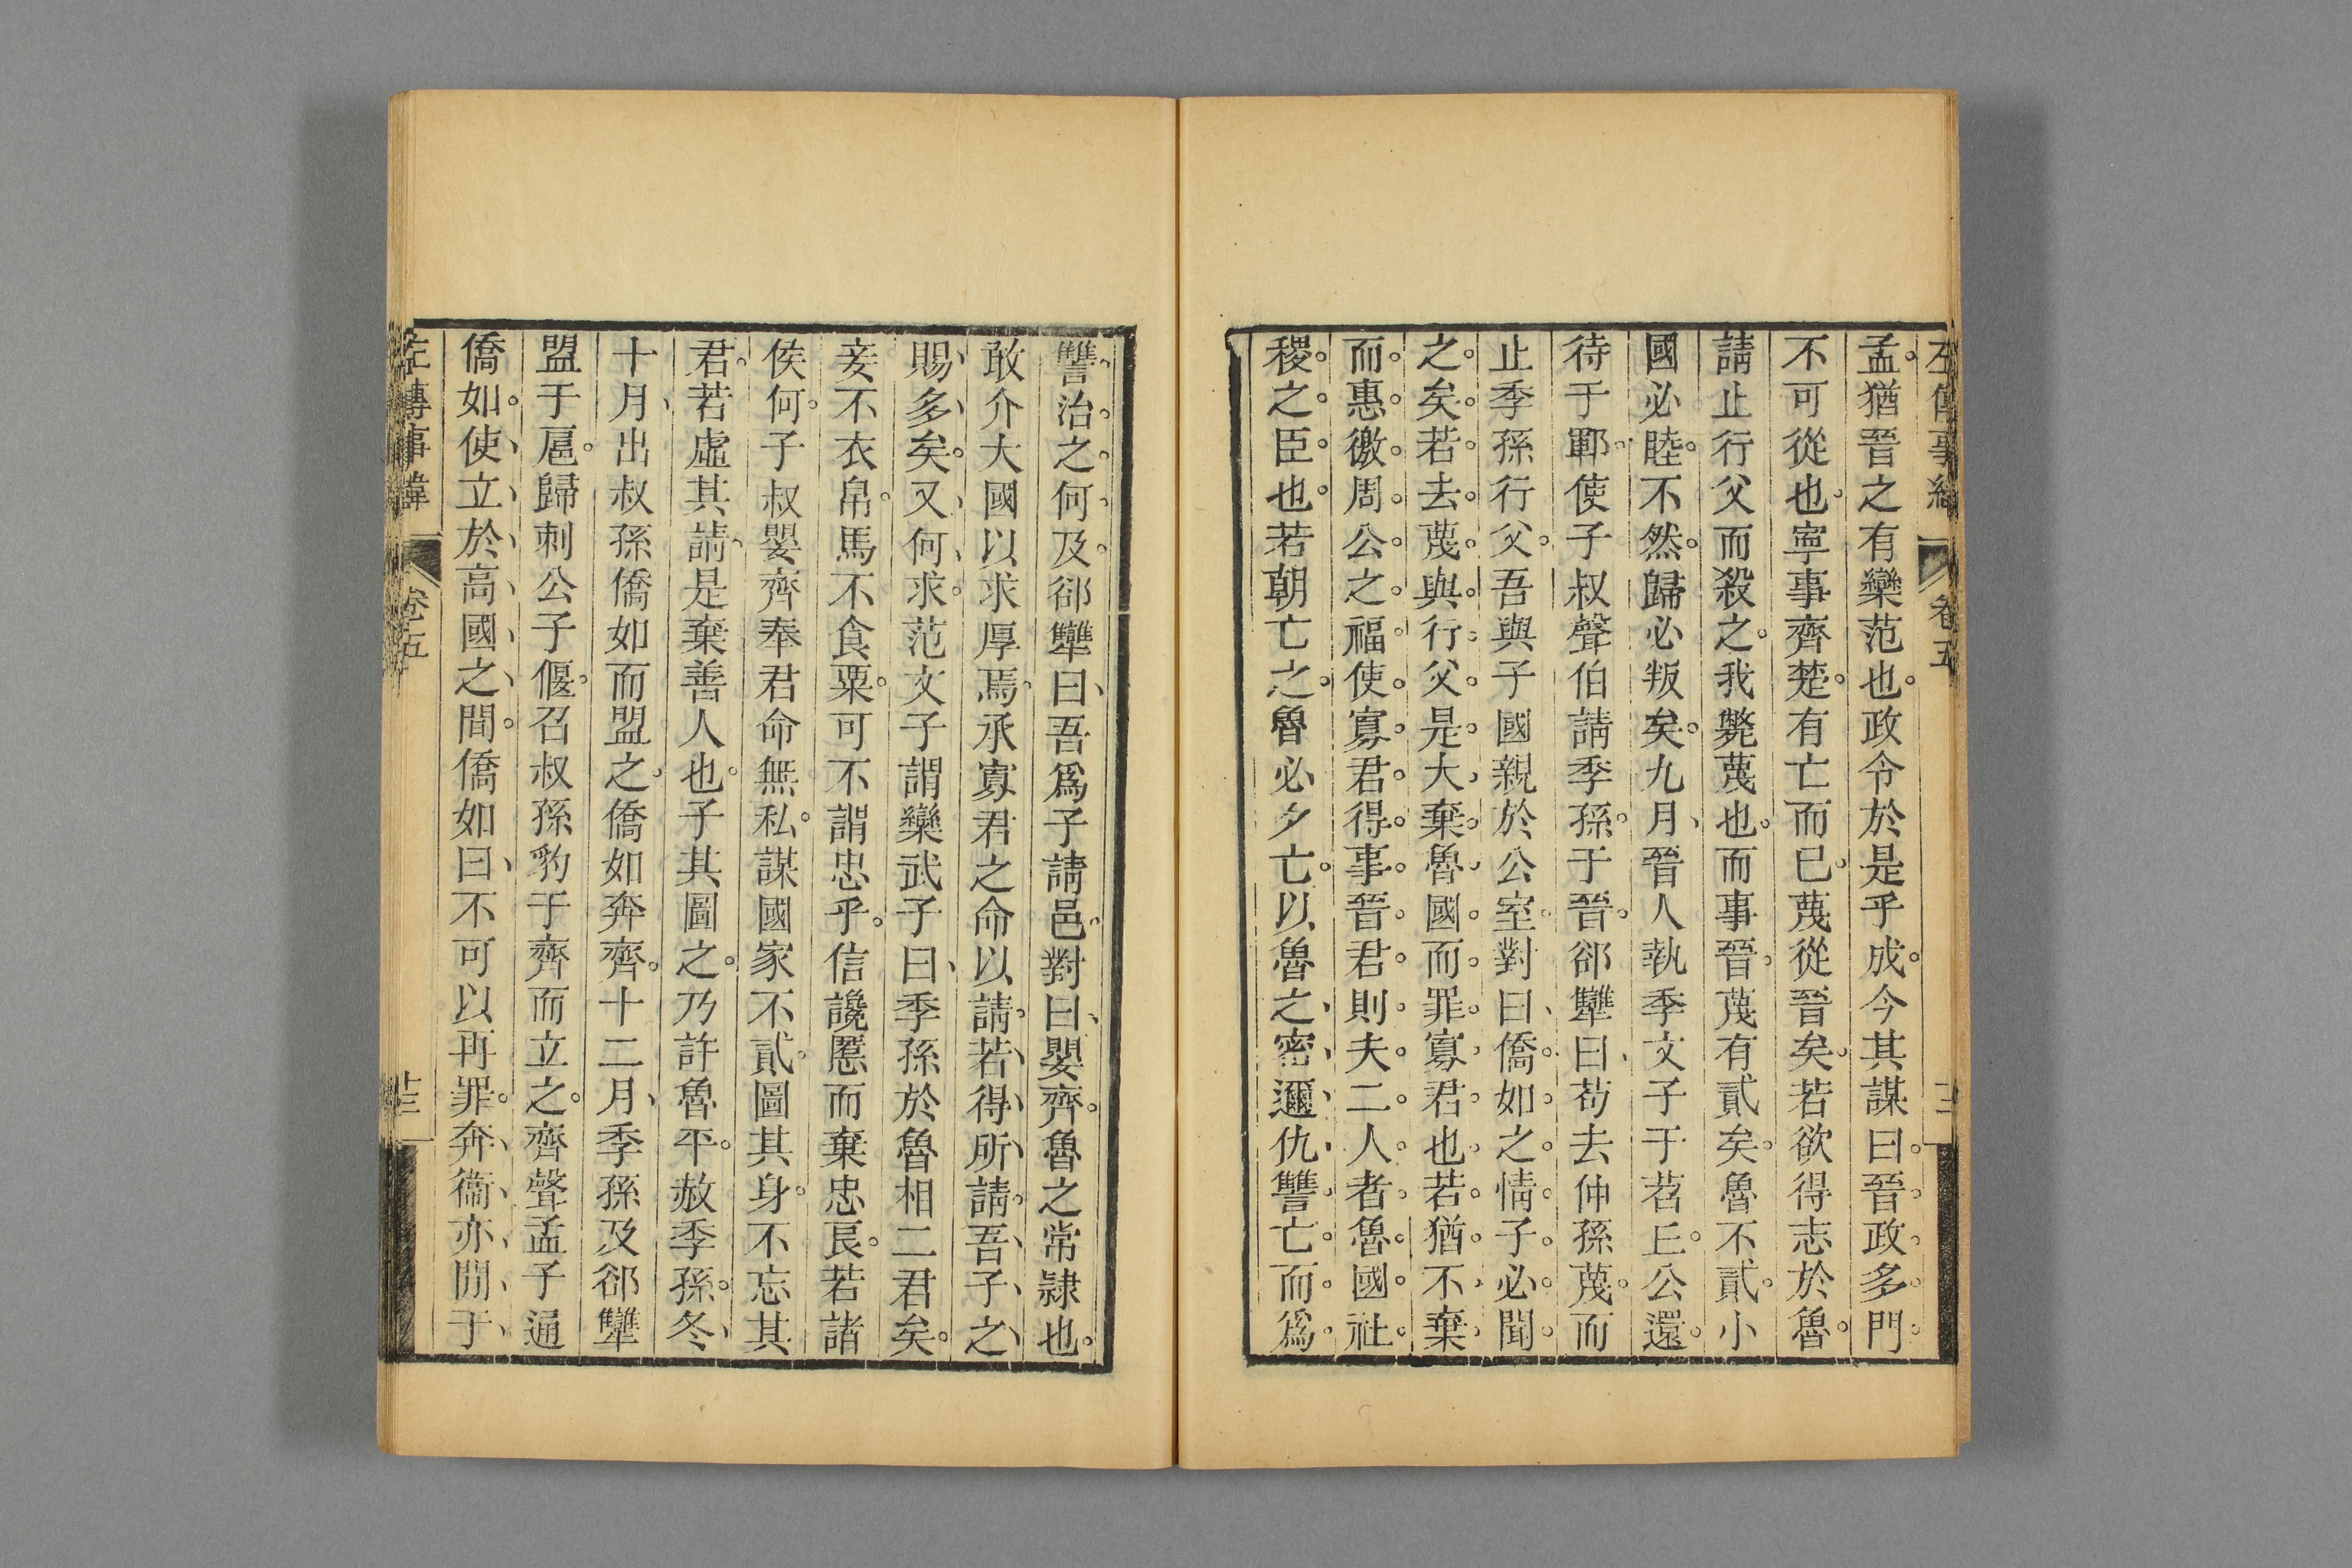 左傳事緯 卷五
孟猶晉之有欒范也政令於是乎成今其謀曰晉政多門
不可從也寧事齊楚有亡而已蔑從晉矣若欲得志於魯
請止行父而殺之我斃蔑也而事晉蔑有貳矣魯不貳小
國必睦不然歸必叛矣九月晉人執季文子于苕丘公還
待于鄆使子叔聲伯請季孫于晉郤犫曰苟去仲孫蔑而
止季孫行父吾與子國親於公室對曰僑如之情子必聞
之矣若去蔑與行父是大棄魯國而罪寡君也若猶不棄
而惠徼周公之福使寡君得事晉君則夫二人者魯國社
稷之臣也若朝亡之魯必夕亡以魯之密邇仇讐亡而爲
讐治之何及郤犫曰吾爲子請邑對曰嬰齊魯之常隷也
敢介大國以求厚焉承寡君之命以請若得所請吾子之
賜多矣又何求范文子謂欒武子曰季孫於魯相二君矣
妾不衣帛馬不食粟可不謂忠乎信讒慝而棄忠良若諸
侯何子叔嬰齊奉君命無私謀國家不貳圖其身不忘其
君若虛其請是棄善人也子其圖之乃許魯平赦季孫冬
十月出叔孫僑如而盟之僑如奔齊十二月季孫及郤犫
盟于扈歸刺公子偃召叔孫豹于齊而立之齊聲孟子通
僑如使立於高國之間僑如曰不可以再罪奔衞亦閒于
左傳事緯 卷五 廿三